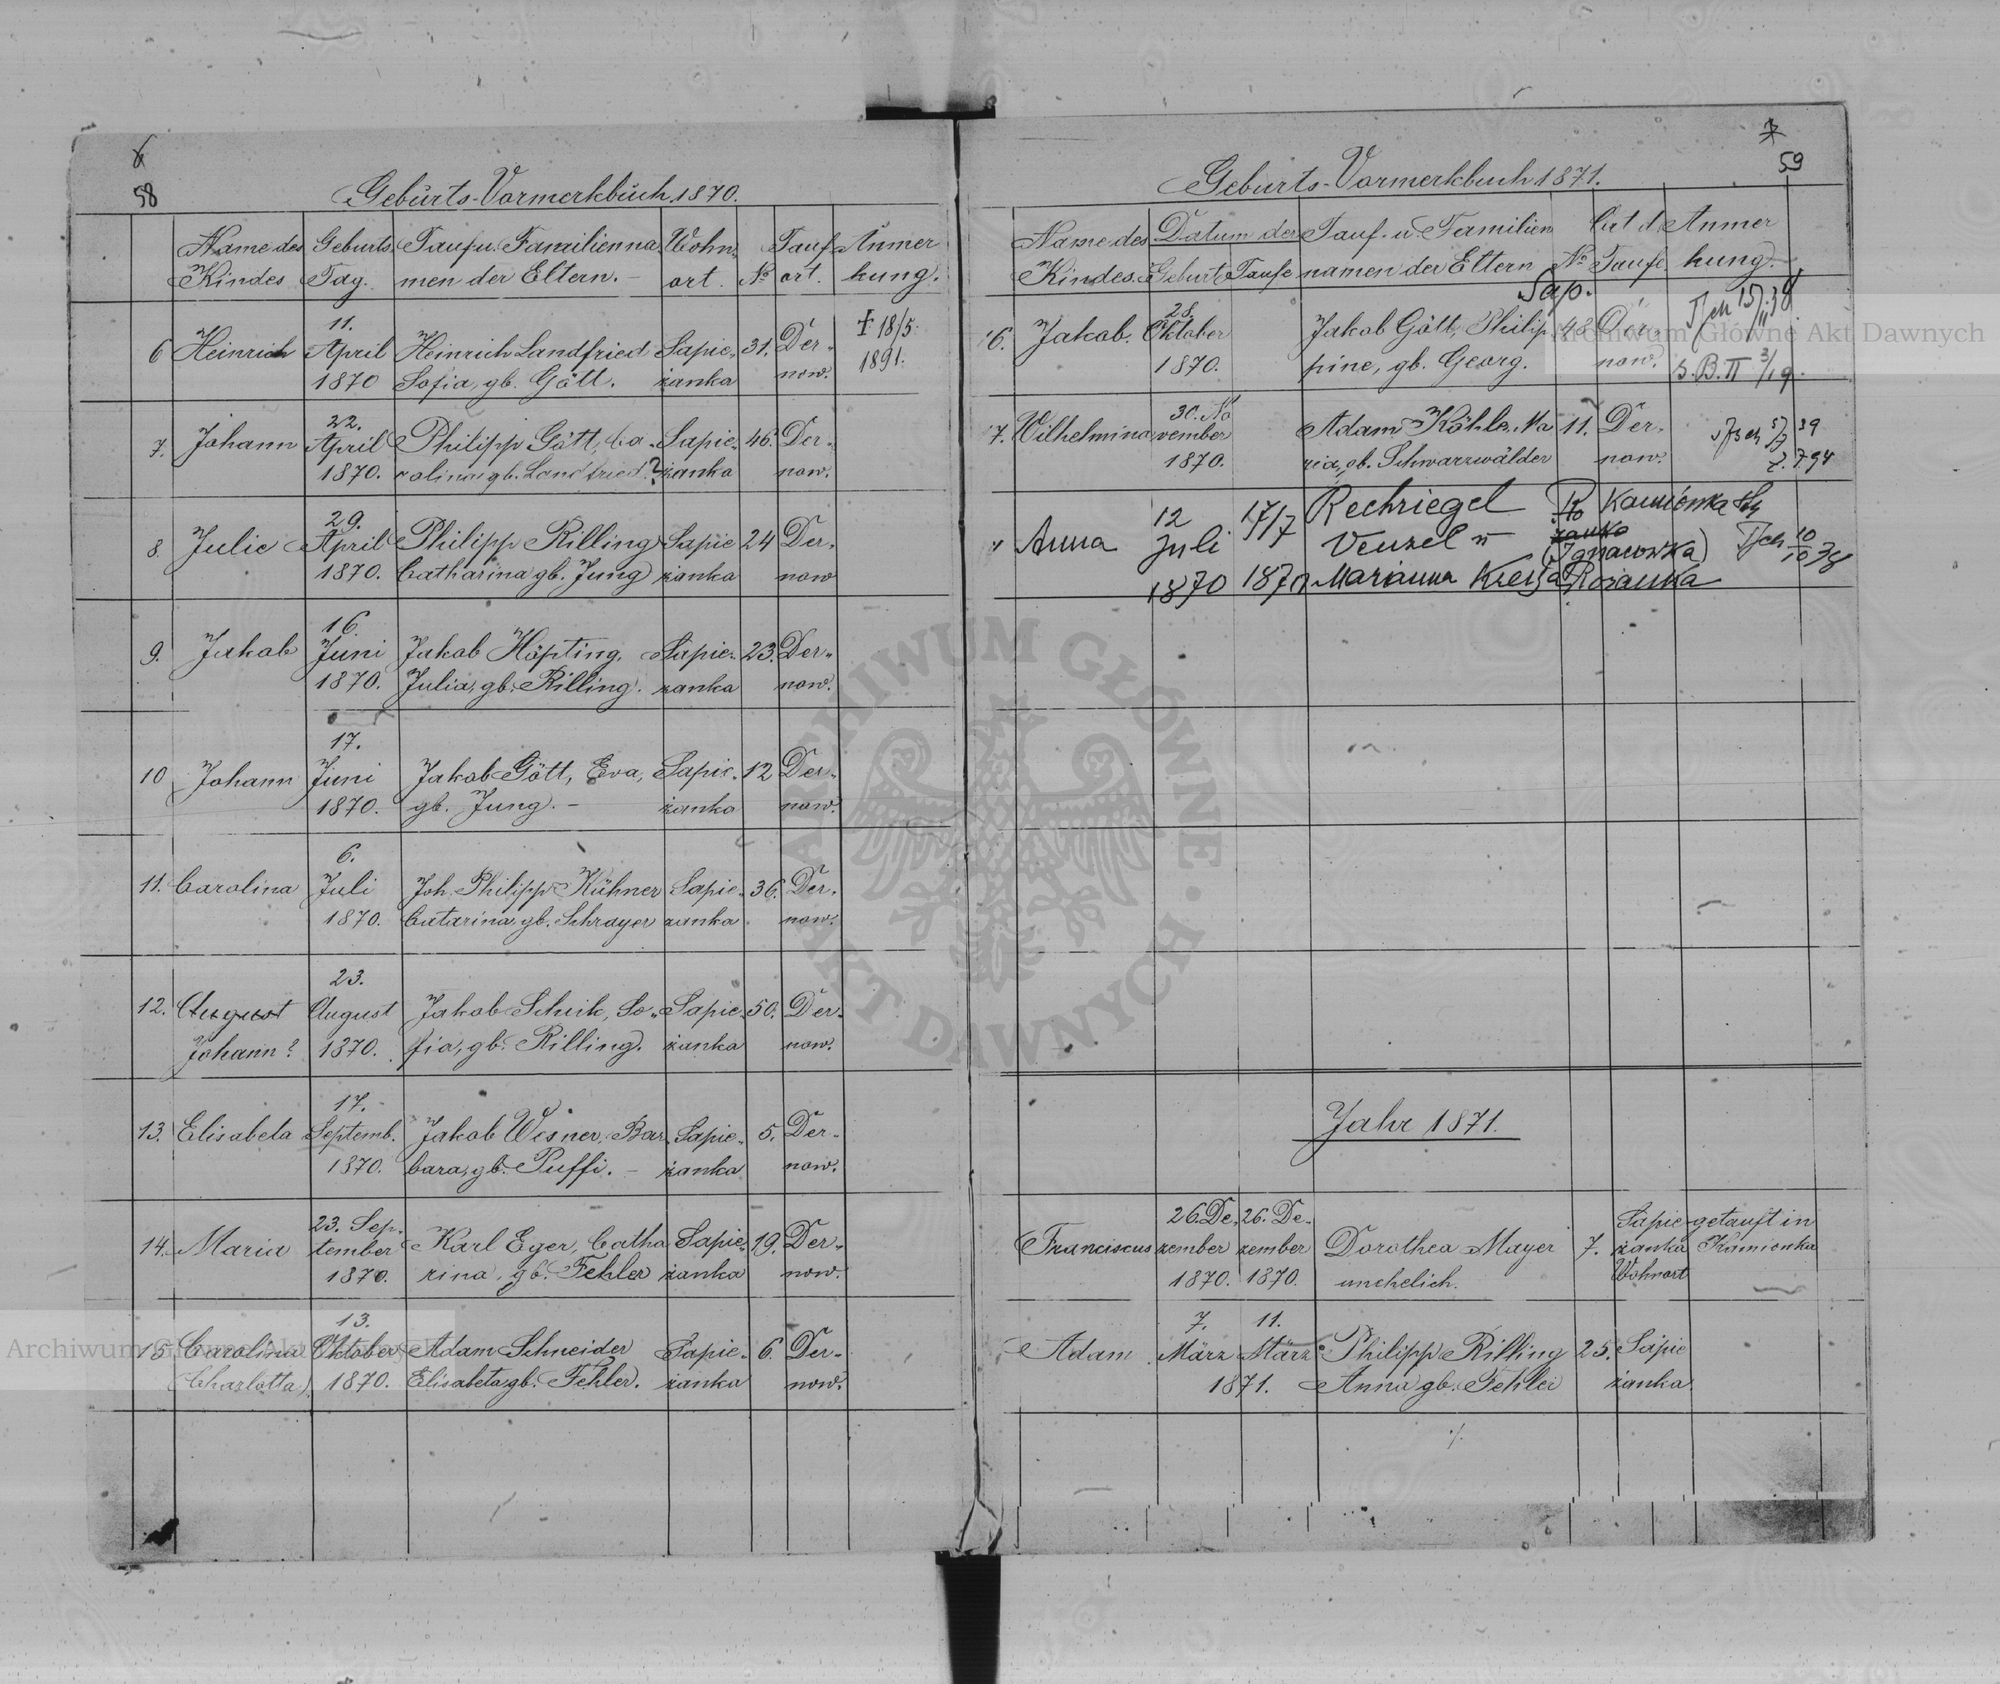 6
58
Geburts-Vormerkbuch 1870.
Name des Kindes
Geburts Tag.
Tauf u. Familienna
men der Eltern.
Wohn
ort.
No
Tauf
ort.
Anmer
kung.
6 Heinrich 11. April 1870
Heinrich Landfried
Sofia, gb. Gött.
Sapie-
żanka
31.
Der-
now.
18/5.
1891.
7. Johann 22. April 1870.
Philipp Gött, Ca-
rolina gb. Landfried ?
Sapie-
żanka
46.
Der-
now.
8. Julie 29. April 1870.
Philipp Rilling
Catharina gb. Jung
Sapie
żanka
24
Der-
now
9. Jakob 16. Juni 1870.
Jakob Höpting,
Julia, gb. Rilling.
Sapie-
żanka
23.
Der-
now.
10 Johann 17. Juni 1870.
Jakob Gött, Eva,
gb. Jung. -
Sapie-
żanka
12
Der-
now.
11. Carolina 6. Juli 1870.
Joh. Philipp Kühner
Catarina gb. Schrayer
Sapie-
żanka
36.
Der-
now.
12. August
Johann?
23. August 1870.
Jakob Schick, So-
fia, gb. Rilling.
Sapie-
żanka
50.
Der-
now.
13. Elisabeta 17. Septemb. 1870.
Jakob Wesner, Bar
bara, gb. Puffi. -
Sapie-
żanka
5.
Der-
now.
14. Maria 23. Sep-
tember
1870.
Karl Eger, Catha
rina, gb. Fehler
Sapie-
żanka
19.
Der-
now.
15 Carolina
(Charlotta)
13. Oktober 1870.
Adam Schneider
Elisabeta gb. Fehler.
Sapie-
żanka
6.
Der-
now.
7
59
Geburts-Vormerkbuch 1871.
Name des
Kindes.
Datum der
Geburt Taufe
Tauf- u. Familien
namen der Eltern
No
Ort d.
Taufe
Anmer
kung.
Sap.
16. Jakob. 28. Oktober 1870.
Jakob Gött, Philip
pine, gb. Georg.
48
Der-
now.
S. B. II 3/19.
17. Wilhelmina 30. No
vember
1870.
Adam Köhle, Ma
ria, gb. Schwarzwälder
11.
Der-
now.
39
Z. 794
Anna
12
Juli
1870
17/7
1870
Rechriegel
Venzel
Marianna
Kamionka
Tsch 10/10 38
Jahr 1871.
Franciscus
26. De-
zember
1870.
26. De-
zember
1870.
Dorothea Mayer
unehelich.
7.
Sapie
żanka
Wohnort
getauft in
Kamionka
Adam
7. 11.
März März
1871.
Philipp Rilling
Anna gb. Fehler
25.
Sapie
żanka.
ARCHIWUM GŁÓWNE AKT DAWNYCH
Archiwum Główne Akt Dawnych
Archiwum Główne Akt Dawnych